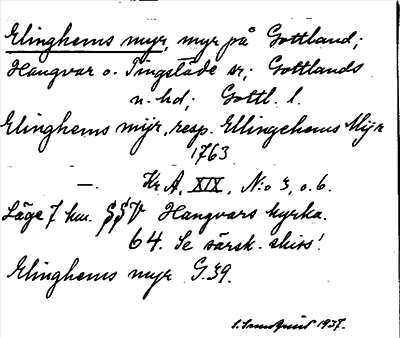 Elinghems myr, myr på Gottland;
Hangvar o. Tingstäde sr; Gottlands
n. hd; Gottl. l.
Elinghems mÿr, resp. Ellingehems Mÿr
1763
—. Kr. A, XIX, N:o 3, o. 6.
Läge 7 km. SSV Hangvars kyrka.
64. Se särsk. skiss!
Elinghems myr G.39.
1937.